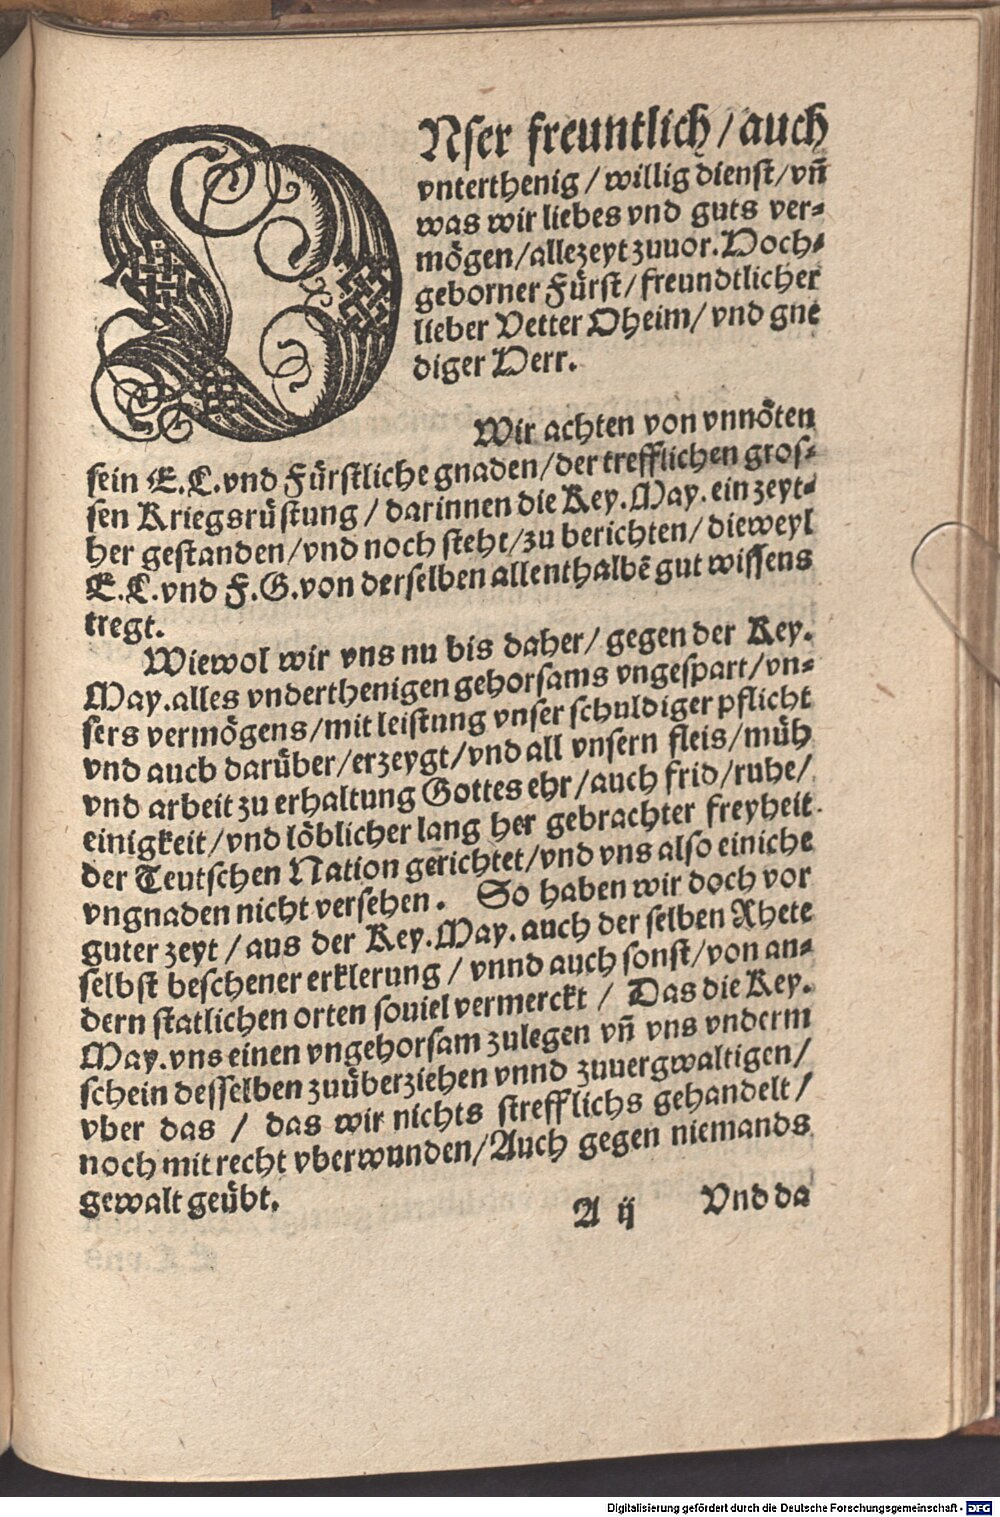 VNser freuntlich / auch
vnterthenig / willig dienst / vñ
was wir liebes vnd guts ver⸗
mögen / allezeyt zuuor. Hoch⸗
geborner Fürst / freundtlicher
lieber Vetter Oheim / vnd gne
diger Herr.
Wir achten von vnnöten
sein E. L. vnd Fürstliche gnaden / der trefflichen gros⸗
sen Kriegsrüstung / darinnen die Key. May. ein zeyt⸗
her gestanden / vnd noch steht / zu berichten / dieweyl
E. L. vnd F. G. von derselben allenthalbē gut wissens
tregt.
Wiewol wir vns nu bis daher / gegen der Key.
May. alles vnderthenigen gehorsams vngespart / vn⸗
sers vermögens / mit leistung vnser schuldiger pflicht
vnd auch darüber / erzeygt / vnd all vnsern fleis / müh
vnd arbeit zu erhaltung Gottes ehr / auch frid / ruhe /
einigkeit / vnd löblicher lang her gebrachter freyheit
der Teutschen Nation gerichtet / vnd vns also einiche
vngnaden nicht versehen. So haben wir doch vor
guter zeyt / aus der Key. May. auch der selben Rhete
selbst beschener erklerung / vnnd auch sonst / von an⸗
dern statlichen orten souiel vermerckt / Das die Key.
May. vns einen vngehorsam zulegen vñ vns vnderm
schein desselben zuüberziehen vnnd zuuergwaltigen /
vber das / das wir nichts strefflichs gehandelt /
noch mit recht vberwunden / Auch gegen niemands
gewalt geübt.
A ij Vnd da
Digitalisierung gefördert durch die Deutsche Forschungsgemeinschaft - DFG